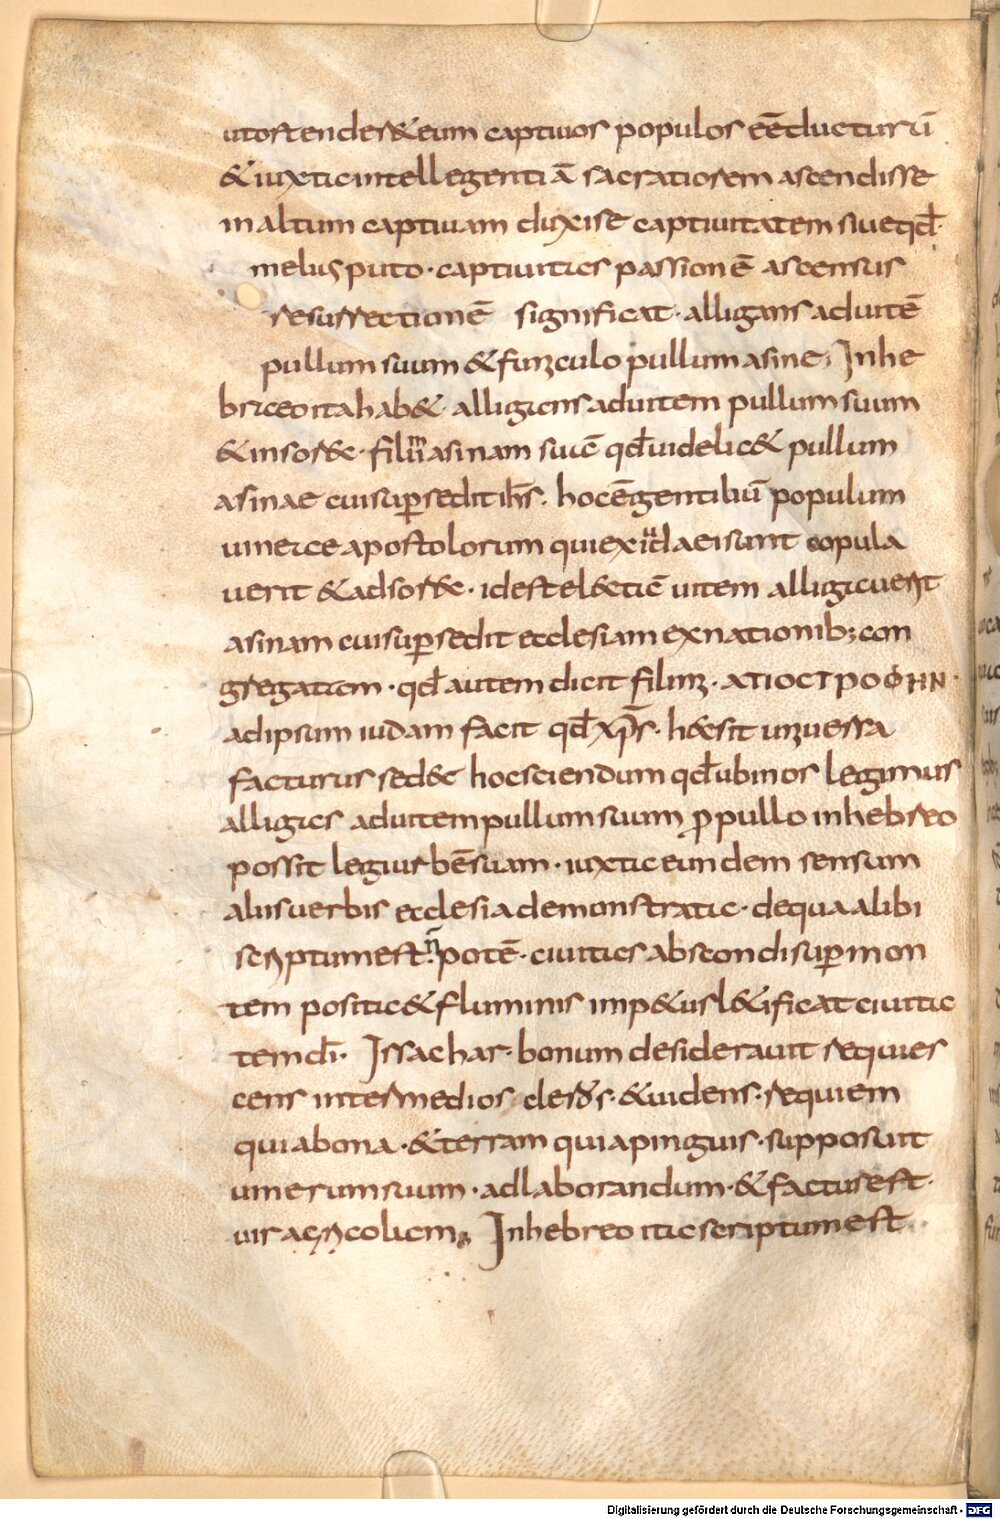 utostender&eum captiuos populos eē ducturū
& iuxta intellegentiā sacratiorem ascendisse
in altum captiuam duxisse captiuitatem siue qđ
melius puto · captiuitas passionē ascensus
resurrectionē significat · alligans ad uitē
pullum suum & funiculo pullum asine; In he
braeo ita hab& · alligans ad uitem pullum suum
& in sor&c · filiū asinam suā qđ uidelic& pullum
asinae cui supersedit ihs̄ · hoc ē gentiliū populum
uineae apostolorum qui ex iudaeis sunt copula
uerit & ad sor&c · id est electā uitem alligauerit
asinam cui supersedit ecclesiam ex nationib; con
gregatam · qđ autem dicit fili mi · ΑΠΟϹΤΡΟΦΗΝ ·
ad ipsum iudam facit qđ xps̄ · haec sit uniuersa
facturus sed & hoc sciendum qđ ubi nos legimus
alligans ad uitem pullum suum p pullo in hebreo
possit legi urbē suam · iuxta eundem sensum
aliis uerbis ecclesia demonstrata · de qua alibi
scriptum est · n̄ potē · ciuitas abscondi super mon
tem posita & fluminis imp&us l&ificat ciuita
tem dī · Issachar · bonum desiderauit requies
cens inter medios cleros · & uidens · requiem
quia bona · & terram quia pinguis · supposuit
umerum suum · ad laborandum · & factus est ·
uir agricolam; In hebreo ita scriptum est
Digitalisierung gefördert durch die Deutsche Forschungsgemeinschaft - DFG